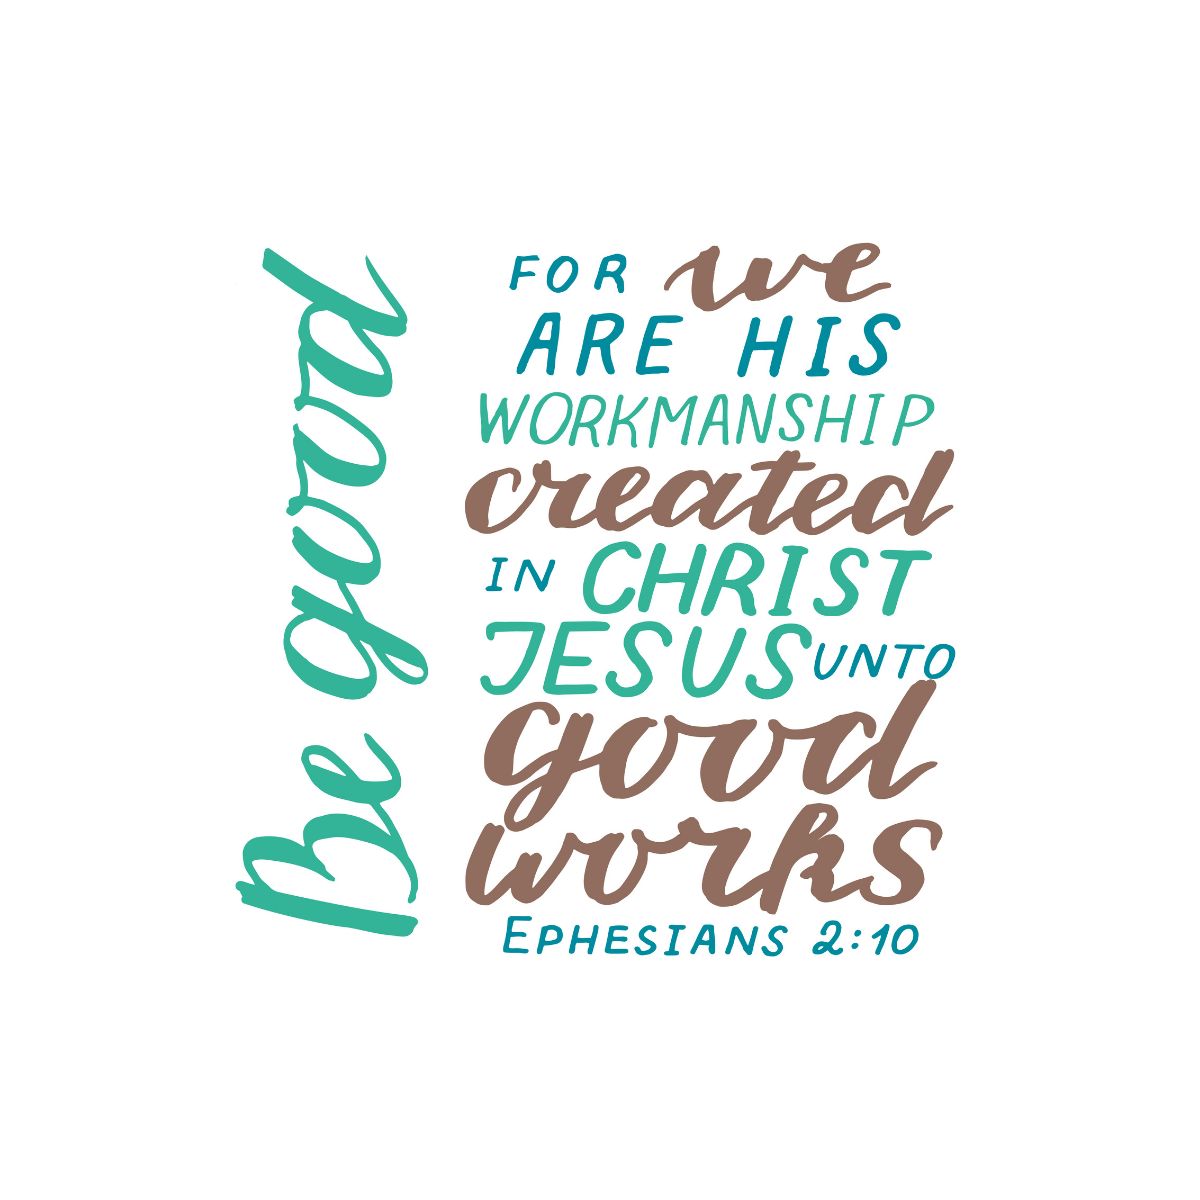 Be good
FOR we
ARE HIS
WORKMANSHIP
created
IN CHRIST
JESUS UNTO
good
works
EPHESIANS 2:10